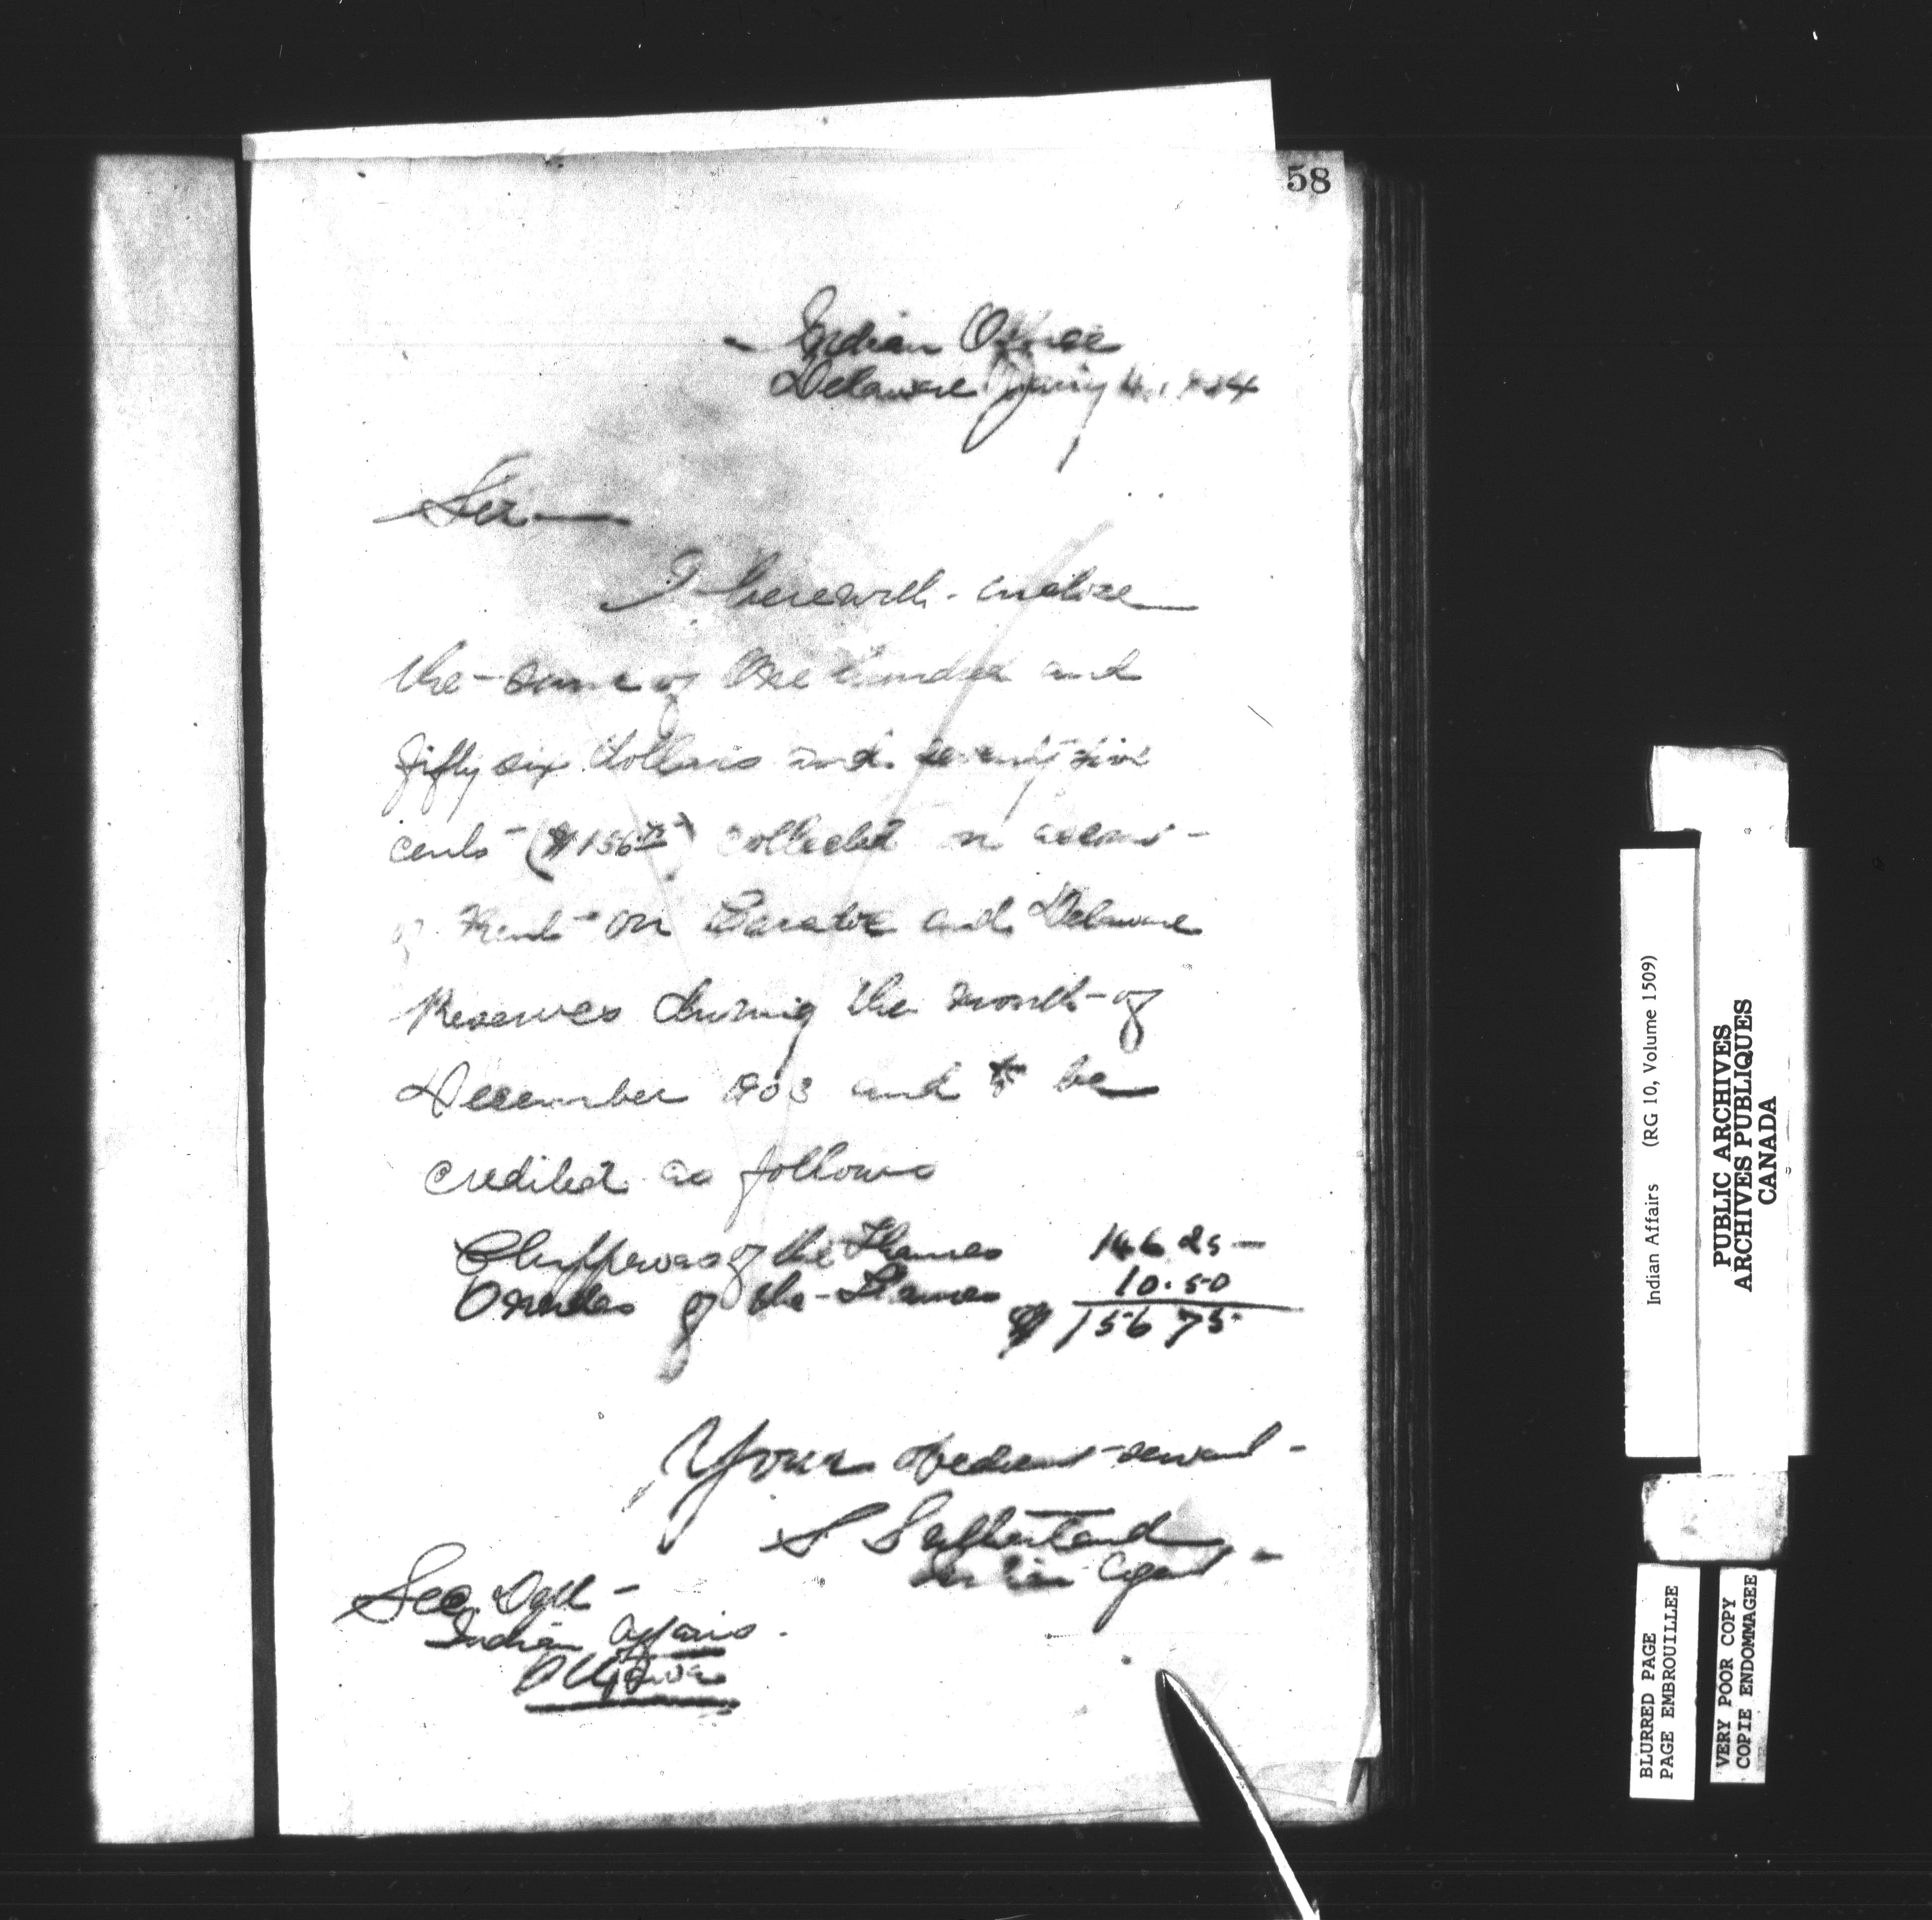 58
Indian Office
Delaware Jany 4, 1904
Sir
I herewith enclose
the sum of One hundred and
fifty six dollars and seventy five
cents ($156.75) collected on account
of Rent on Caradoc and Delaware
Reserves during the month of
December 1903 and to be
credited as follows
Chippewas of the Thames 146 25
Oneidas of the Thames 10.50
$ 156 75
Your obedient servant
S Sutherland
Indian Agent
Sec Dept
Indian Affairs
Ottawa
Indian Affairs (RG 10, Volume 1509)
PUBLIC ARCHIVES
ARCHIVES PUBLIQUES
CANADA
BLURRED PAGE
PAGE EMBROUILLEE
VERY POOR COPY
COPIE ENDOMMAGEE